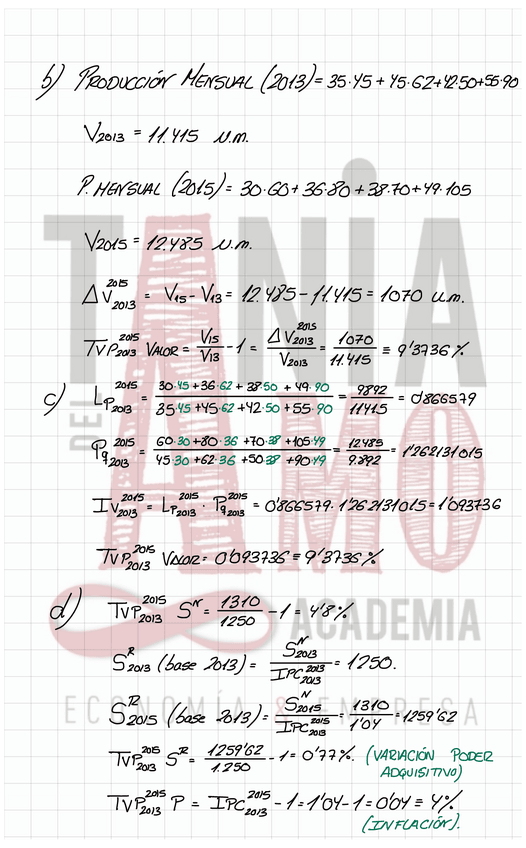 b) PRODUCCIÓN MENSUAL (2013) = 35·45 + 45·62+42·50+55·90
V2013 = 11.415 u.m.
P. MENSUAL (2015) = 30·60 + 36·80 + 38·70 + 49·105
V2015 = 12.485 u.m.
ΔV 2015 2013 = V15 - V13 = 12.485 - 11.415 = 1070 u.m.
TVP 2015 2013 VALOR = V15/V13 - 1 = ΔV 2015 2013 / V2013 = 1070/11.415 ≡ 9'3736%
c) Lp 2015 2013 = (30·45 + 36·62 + 38·50 + 49·90)/(35·45 + 45·62 + 42·50 + 55·90) = 9892/11415 = 0'866579
Pq 2015 2013 = (60·30 + 80·36 + 70·38 + 105·49)/(45·30 + 62·36 + 50·38 + 90·49) = 12485/9.892 = 1'262131015
IV 2015 2013 = Lp 2015 2013 · Pq 2015 2013 = 0'866579 · 1'262131015 = 1'093736
TVP 2015 2013 VALOR = 0'093736 ≡ 9'3736%
d) TVP 2015 2013 S^N = 1310/1250 - 1 = 4'8%
S^R 2013 (base 2013) = S^N 2013 / IPC 2013 2013 = 1250.
S^R 2015 (base 2013) = S^N 2015 / IPC 2015 2013 = 1310/1'04 = 1259'62
TVP 2015 2013 S^R = 1259'62/1.250 - 1 = 0'77%. (VARIACIÓN PODER
ADQUISITIVO)
TVP 2015 2013 P = IPC 2015 2013 - 1 = 1'04 - 1 = 0'04 ≡ 4%
(INFLACIÓN).
TANIA
DEL
AMO
ACADEMIA
ECONOMÍA & EMPRESA